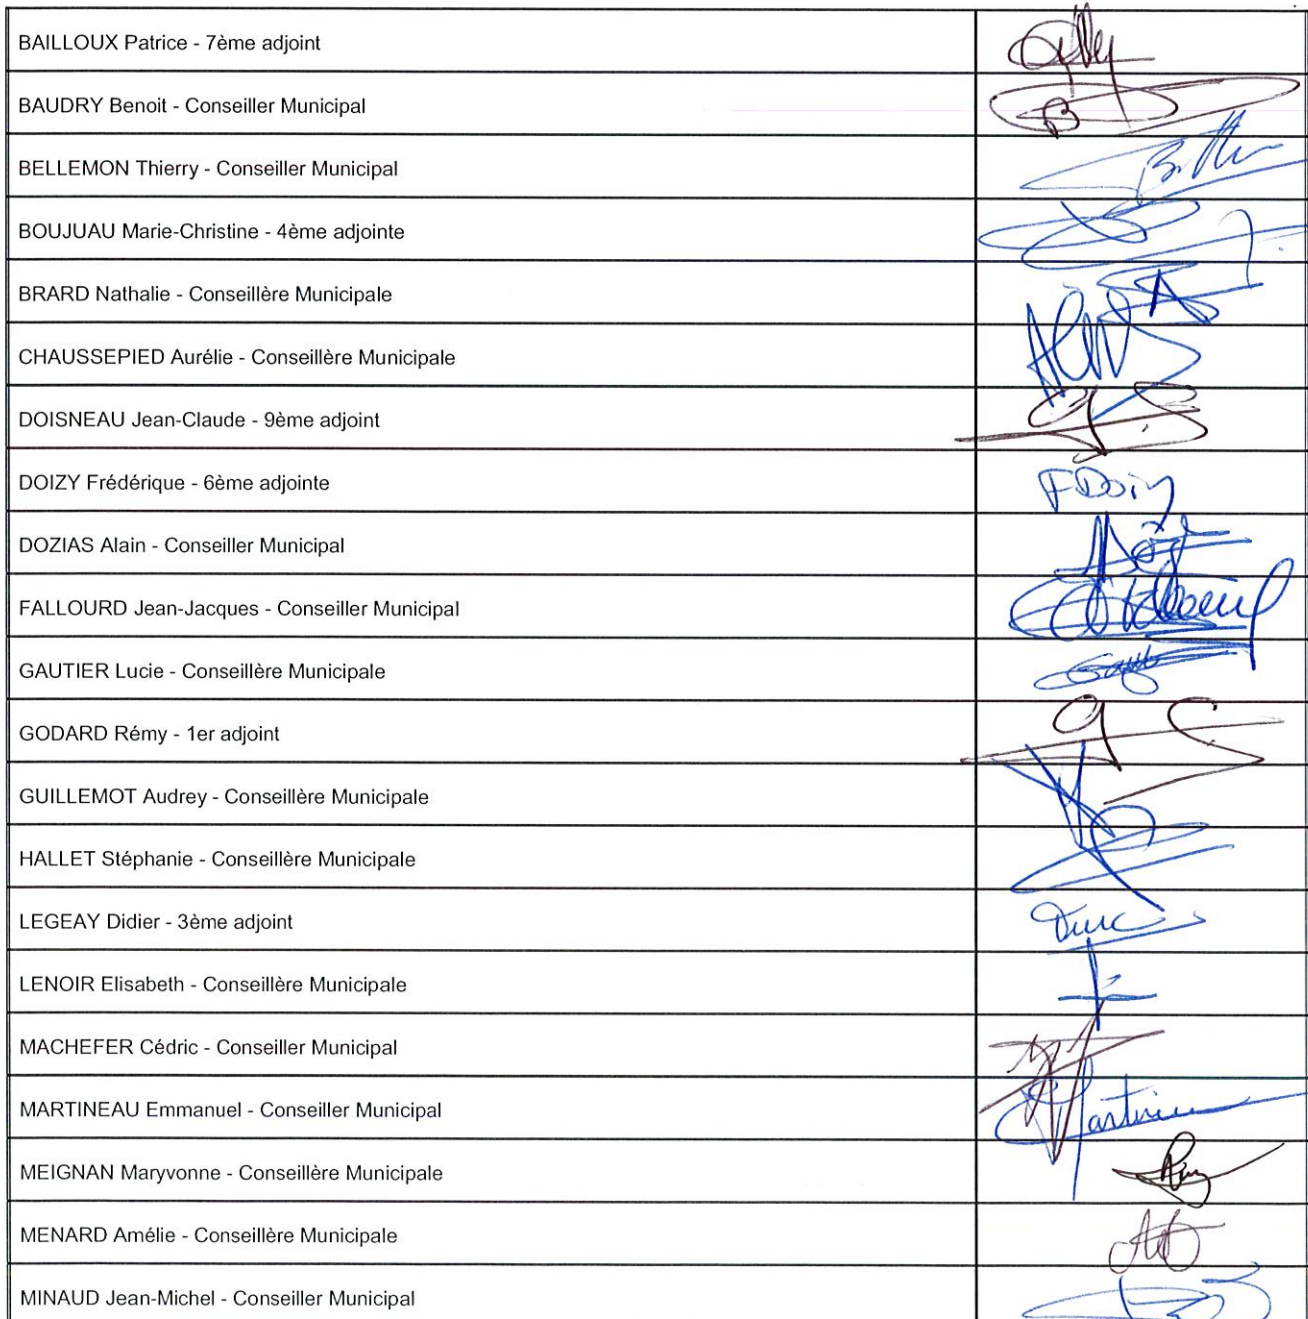 BAILLOUX Patrice - 7ème adjoint
BAUDRY Benoit - Conseiller Municipal
BELLEMON Thierry - Conseiller Municipal
BOUJUAU Marie-Christine - 4ème adjointe
BRARD Nathalie - Conseillère Municipale
CHAUSSEPIED Aurélie - Conseillère Municipale
DOISNEAU Jean-Claude - 9ème adjoint
DOIZY Frédérique - 6ème adjointe
DOZIAS Alain - Conseiller Municipal
FALLOURD Jean-Jacques - Conseiller Municipal
GAUTIER Lucie - Conseillère Municipale
GODARD Rémy - 1er adjoint
GUILLEMOT Audrey - Conseillère Municipale
HALLET Stéphanie - Conseillère Municipale
LEGEAY Didier - 3ème adjoint
LENOIR Elisabeth - Conseillère Municipale
MACHEFER Cédric - Conseiller Municipal
MARTINEAU Emmanuel - Conseiller Municipal
MEIGNAN Maryvonne - Conseillère Municipale
MENARD Amélie - Conseillère Municipale
MINAUD Jean-Michel - Conseiller Municipal